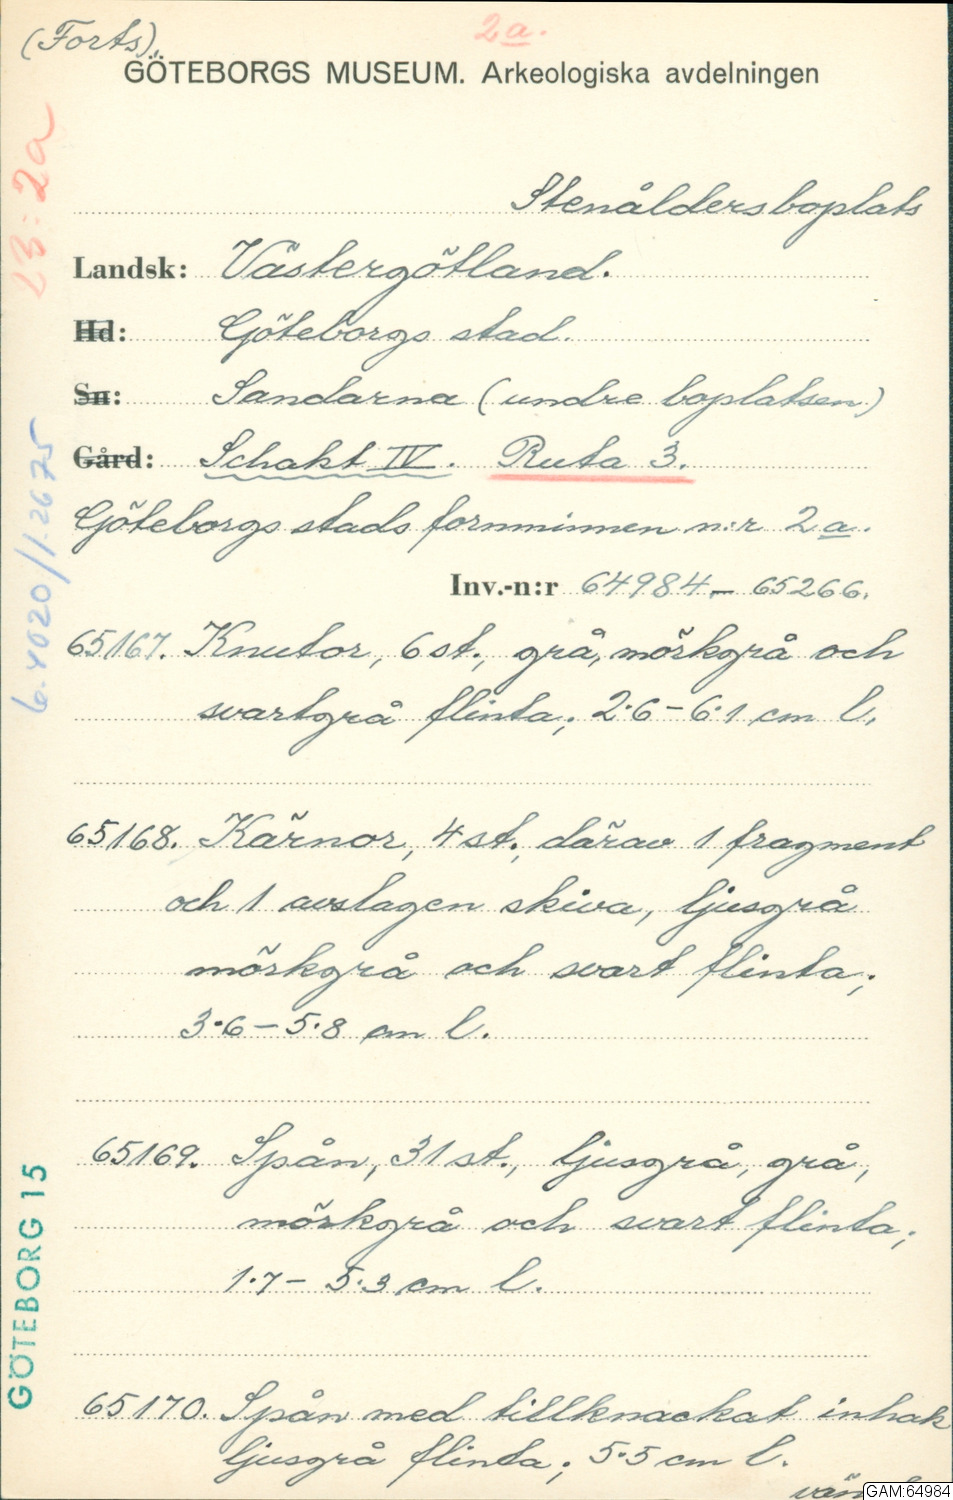 (Forts).
2a.
GÖTEBORGS MUSEUM. Arkeologiska avdelningen
Stenåldersboplats
Landsk: Västergötland.
Hd: Göteborgs stad.
Sn: Sandarna (undre boplatsen)
Gård: Schakt IV. Ruta 3.
Göteborgs stads fornminnen n:r 2a.
Inv.-n:r 64984 – 65266.
65167. Knutor, 6 st., grå, mörkgrå och
svartgrå flinta; 2·6 – 6·1 cm l.
65168. Kärnor, 4 st., därav 1 fragment
och 1 avslagen skiva, ljusgrå
mörkgrå och svart flinta;
3·6 – 5·8 cm l.
65169. Spån, 31 st., ljusgrå, grå,
mörkgrå och svart flinta;
1·7 – 5·3 cm l.
65170. Spån med tillknackat inhak
ljusgrå flinta; 5·5 cm l.
GAM:64984
23:2a
GÖTEBORG 15